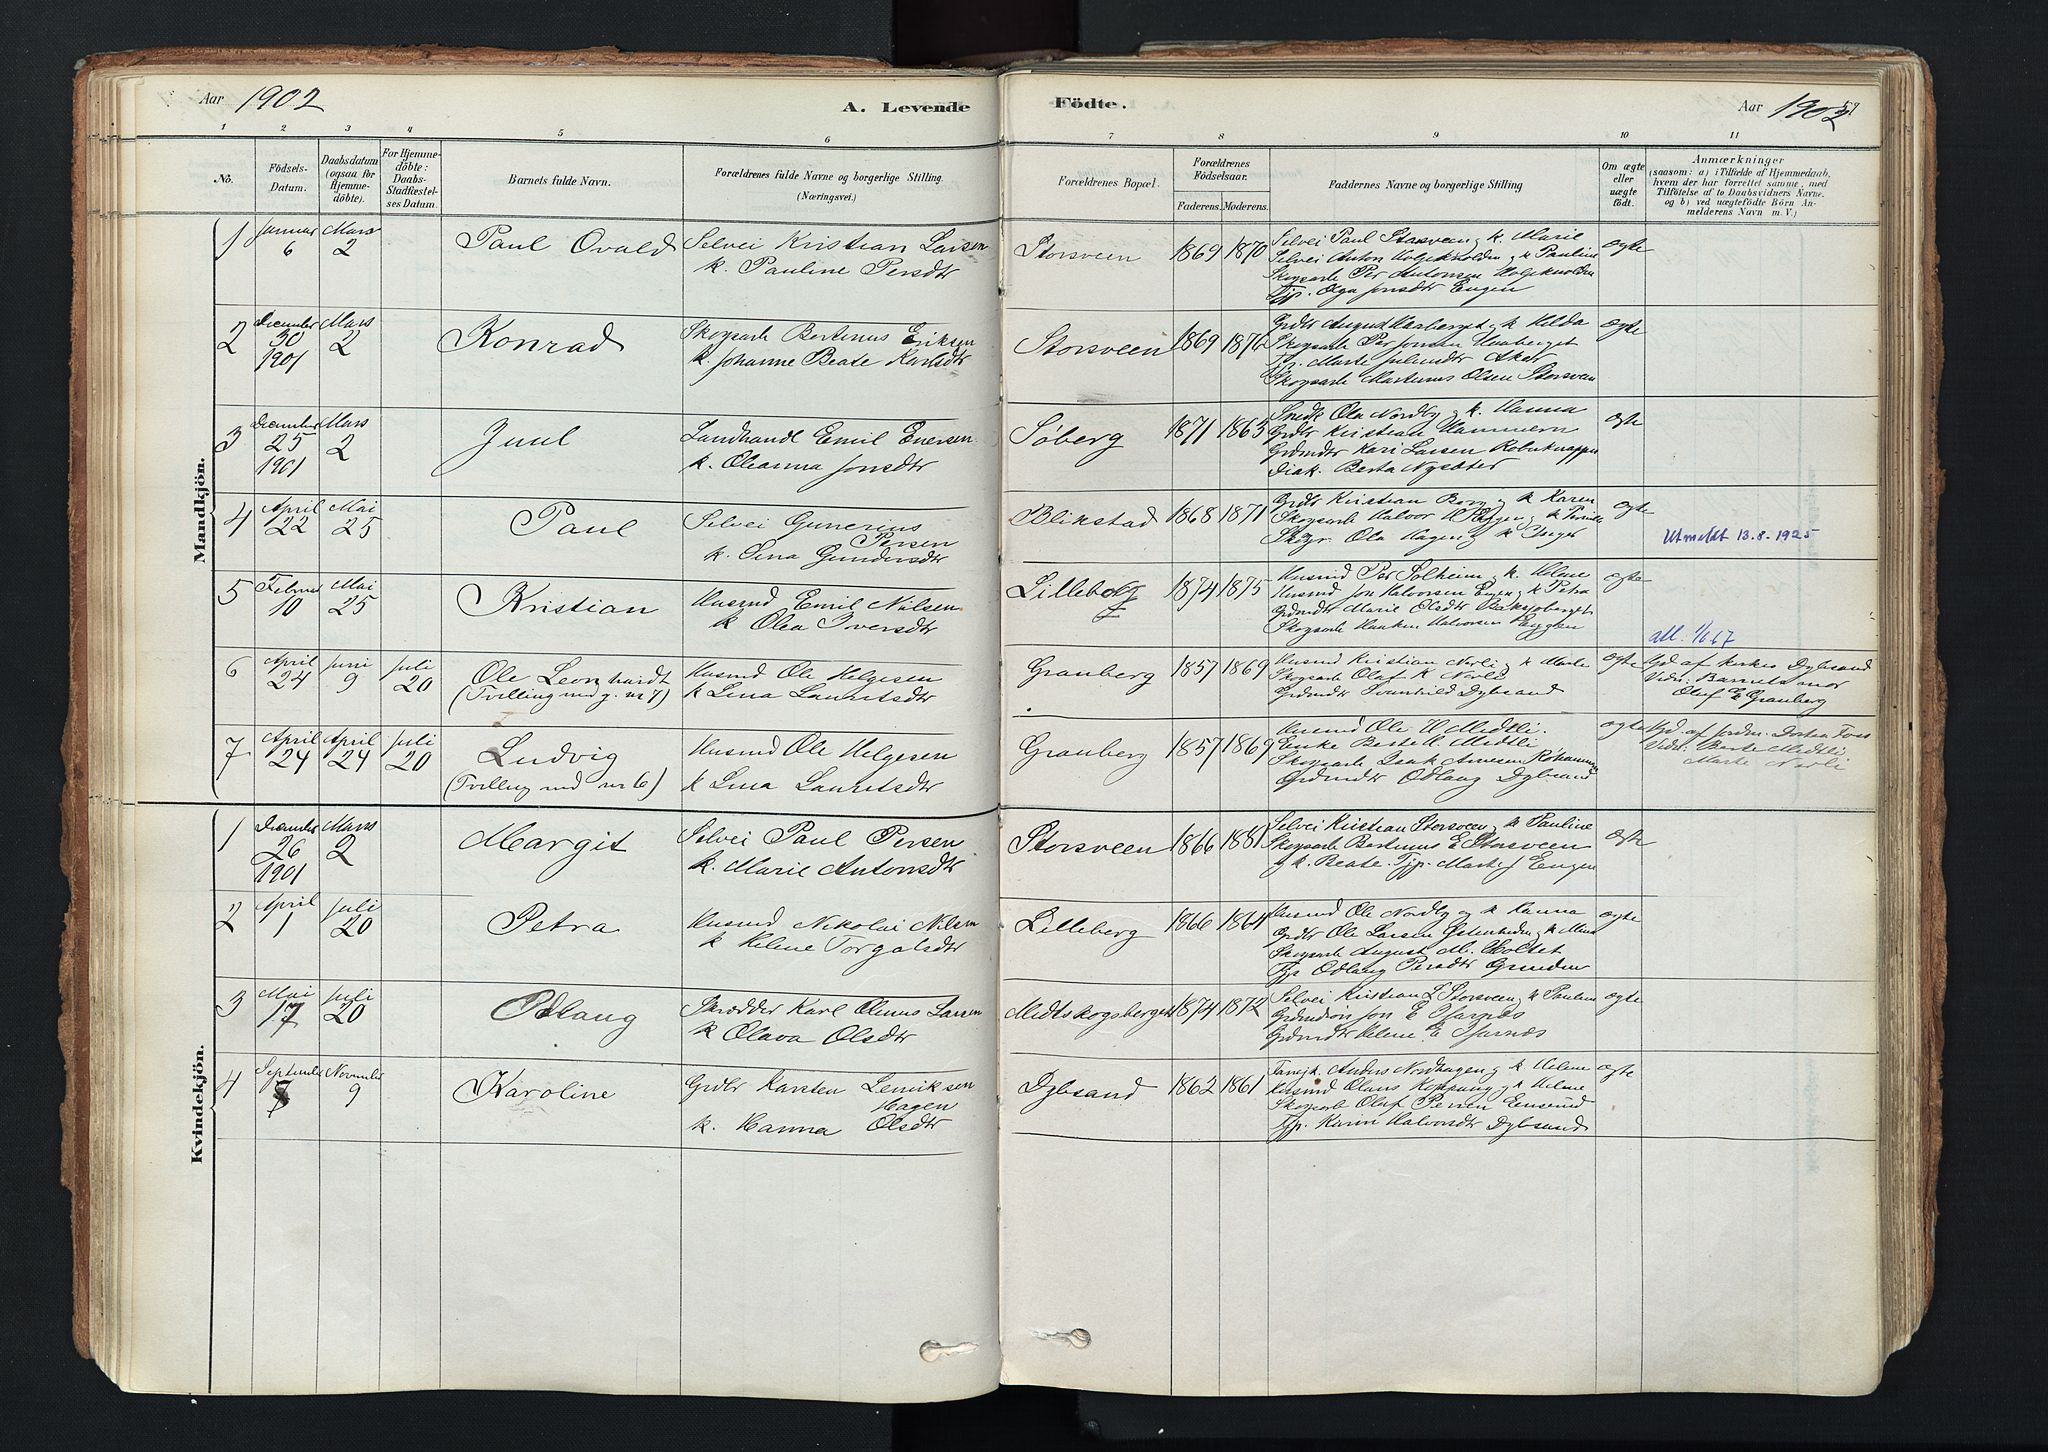 Aar 1902
A. Levende
Födte.
Aar 1902
59
1 2 3 4 5 6 7 8 9 10 11
No.
Födsels-
Datum.
Daabsdatum
(ogsaa for
Hjemme-
döbte).
For Hjemme-
döbte:
Daabs-
Stadfæstel-
ses Datum.
Barnets fulde Navn.
Forældrenes fulde Navne og borgerlige Stilling.
(Næringsvei.)
Forældrenes Bopæl.
Forældrenes
Födselsaar.
Faderens. Moderens.
Faddernes Navne og borgerlige Stilling
Om ægte
eller
uægte
födt.
Anmærkninger
(saasom: a) i Tilfælde af Hjemmedaab,
hvem der har forrettet samme, med
Tilföielse af to Daabsvidners Navne,
og b) ved uægtefödte Börn An-
melderens Navn m. V.)
Mandkjön.
1 Januar 6 Mars 2 Paul Ovald
Selvei Kristian Larsen
k. Pauline Persdtr
Storsveen 1869 1870
Selvei Paul Storsveen, k. Marie
Selvei Anton Holzknolden, k Pauline
Skogsarb Per Antonsen Holzknolden
Tjp. Olga Jonsdtr Engen
ægte
2 December 30 1901 Mars 2 Konrad
Skogsarb Bertinus Eriksen
k. Johanne Beate Karlsdtr
Storsveen 1869 1876
Grdbr August Haaberget, k Hilda
Skogsarb Per Jonsen Haaberget
Tjp. Marte Julsendtr Aker
Skogsarb Martinus Olsen Storsveen
ægte
3 December 25 1901 Mars 2 Juul
Landhandl Emil Enersen
k. Oleanna Jonsdtr
Søberg 1871 1865
Snedk Ola Nordby og k. Hanna
Grdbr Kristian Hammern
Grdmdtr Kari Larsen Robuknappen
Diak. Berta Nysæter
ægte
4 April 22 Mai 25 Paul
Selvei Gunerius
Persen
k. Lina Gundersdtr
Blikstad 1868 1871
Grdbr Kristian Borg, k Karen
Skogsarb Halvor H Eggen, k Pernille
Skogr. Ola Hagen, k Inger
ægte
Utmeldt 13.8-1925
5 Februar 10 Mai 25 Kristian
Husmd Emil Nilsen
k Olea Iversdtr
Lilleberg 1874 1875
Husmd Per Solheim, k. Helene
Husmd Jon Halvorsen Engen, k Petra
Grdmdtr Marie Olsdtr
Skogsarb Haaken Halvorsen Eggen
ægte
all. 1/6 67
6 April 24 Juni 9 Juli 20 Ole Leonhardt
(Tvilling med g. nr 7)
Husmd Ole Helgesen
k Lina Lauritsdtr
Grauberg 1857 1869
Husmd Kristian Norli, k Marte
Skogsarb Olaf K Norli
Grdmdtr Svanhild Dybsand
ægte
Hjd af kirkes Dybsand
Vidn: Barnets mor
Oluf E Grauberg
7 April 24 April 24 Juli 20 Ludvig
(Tvilling med nr 6)
Husmd Ole Helgesen
k Lina Lauritsdtr
Grauberg 1857 1869
Husmd Ole H Medtli.
Enke Berte H Medtli
Skogsarb Isak Arnesen
Grdmdtr Odlaug Dybsand
ægte
Hjd. af jordm. Dortea Foss
Vidn: Berte Medtli
Marte Norli
Kvindekjön.
1 December 26 1901 Mars 2 Margit
Selvei Paul Persen
k. Marie Antonsdtr
Storsveen 1866 1881
Selvei Kristian Storsveen, k Pauline
Skogsarb Bertinus E Storsveen
og k. Beate. Tjp. Marte J Engen
ægte
2 April 1 Juli 20 Petra
Husmd Nikolai Nilsen
k Helene Torgalsdtr
Lilleberg 1866 1864
Husmd Ole Nordby og k Hanna
Grdbr Ole Larsen Østenheden, k Mina
Skogsarb August M. Holtet
Tjp Odlaug Persdtr Grinden
ægte
3 Mai 17 Juli 20 Odlaug
Skrædder Karl Olinus Larsen
k Olava Olsdtr
Medtskogsberget 1874 1872
Selvei Kristian L Storsveen, k Pauline
Grdmdsøn Jon E Hornæs
Grdmdtr Helene E Hornæs
ægte
4 September 8 November 9 Karoline
Grdbr Karsten Lenriksen
Hagen
k. Hanna Olsdtr
Dybsand 1862 1861
Anders Nordhagen, k Helene
Husmd Olaus Koppang, k Helene
Skogsarb Oluf Persen Ensrud
Tjp. Karen Halvorsdtr Dybsand
ægte